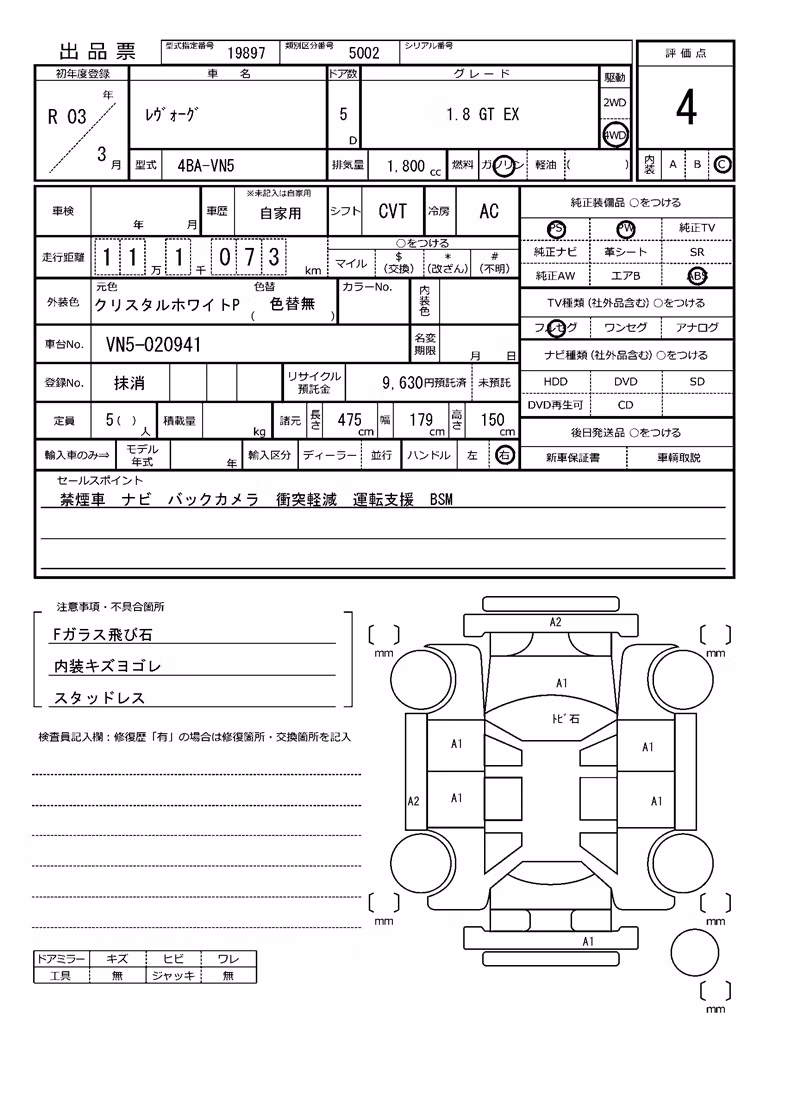 出品票 型式指定番号 19897 類別区分番号 5002 シリアル番号
初年度登録 車名 ドア数 グレード 駆動 評価点
R 03 年 3 月 ﾚｳﾞｫｰｸﾞ 5 D 1.8 GT EX 2WD 4WD 4
型式 4BA-VN5 排気量 1,800 cc 燃料 ガソリン 軽油 ( ) 内装 A B C
車検 年 月 車歴 ※未記入は自家用 自家用 シフト CVT 冷房 AC
走行距離 1 1 万 1 千 0 7 3 km ○をつける マイル $ (交換) * (改ざん) # (不明)
外装色 元色 クリスタルホワイトP 色替 ( 色替無 ) カラーNo. 内装色
車台No. VN5-020941 名変期限 月 日
登録No. 抹消 リサイクル預託金 9,630円預託済 未預託
定員 5( ) 人 積載量 kg 諸元 長さ 475 cm 幅 179 cm 高さ 150 cm
輸入車のみ⇒ モデル年式 年 輸入区分 ディーラー 並行 ハンドル 左 右
純正装備品 ○をつける
PS PW 純正TV
純正ナビ 革シート SR
純正AW エアB ABS
TV種類(社外品含む)○をつける
フルセグ ワンセグ アナログ
ナビ種類(社外品含む)○をつける
HDD DVD SD
DVD再生可 CD
後日発送品 ○をつける
新車保証書 車輌取説
セールスポイント
禁煙車 ナビ バックカメラ 衝突軽減 運転支援 BSM
注意事項・不具合箇所
Fガラス飛び石
内装キズヨゴレ
スタッドレス
検査員記入欄:修復歴「有」の場合は修復箇所・交換箇所を記入
ドアミラー キズ ヒビ ワレ
工具 無 ジャッキ 無
A2
mm mm
A1
ﾄﾋﾞ石
A1 A1
A2 A1 A1
mm mm
A1
mm